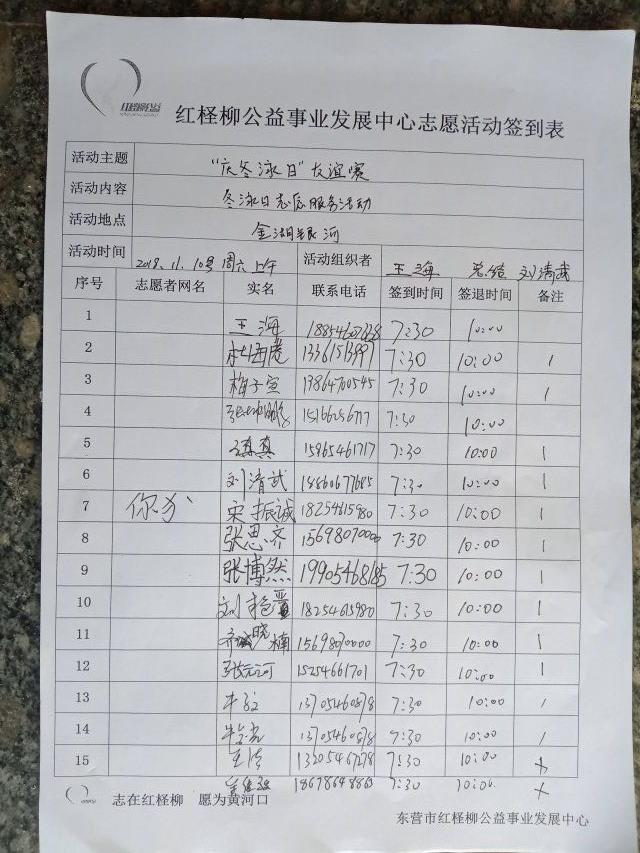 红柽柳公益
红柽柳公益事业发展中心志愿活动签到表
活动主题 "庆冬泳日"友谊赛
活动内容 冬泳日志愿服务活动
活动地点 金湖银河
活动时间 2018.11.10号 周六上午 活动组织者 王海 刘清武
序号 志愿者网名 实名 联系电话 签到时间 签退时间 备注
1 王海 7:30 10:00
2 13361513997 7:30 10:00 1
3 梅子萱 13864700545 7:30 10:00 1
4 15166256717 7:30 10:00
5 真真 15965461717 7:30 10:00 1
6 刘清武 18860677685 7:30 10:00 1
7 你好 宋振诚 18254615980 7:30 10:00 1
8 张思齐 15698070000 7:30 10:00 1
9 张博然 19905468185 7:30 10:00 1
10 刘艳 18254615980 7:30 10:00 1
11 晓楠 15698070000 7:30 10:00 1
12 张元河 15254661701 7:30 10:00 1
13 13705460878 7:30 10:00 /
14 13705460878 7:30 10:00 /
15 王洁 13205467278 7:30 10:00 x
18678648863 7:30 10:00 x
志在红柽柳 愿为黄河口
东营市红柽柳公益事业发展中心